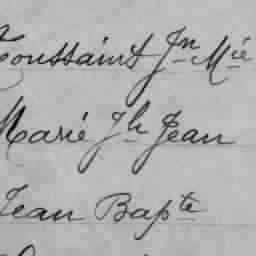 Toussaint Jn Mie
Marie Jh Jean
Jean Bapte